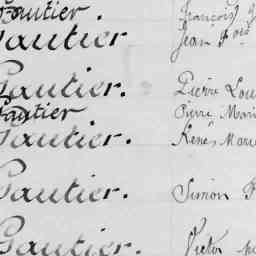 Gautier. François
Gautier Jean F
Gautier. Pierre Lou
Gautier Pierre Mari
Gautier. René Marie
Gautier. Simon F
Gautier. Victor